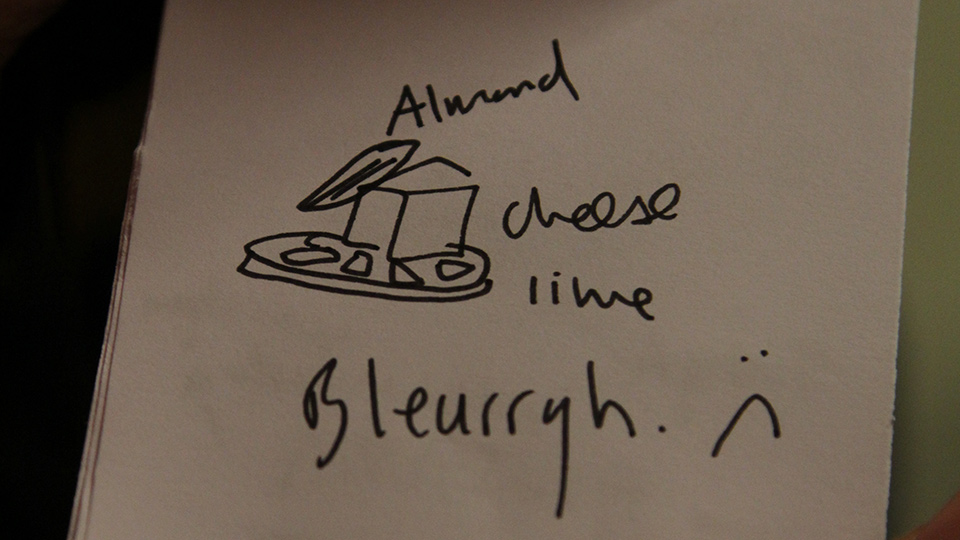 Almond
cheese
lime
Bleurrgh. :(